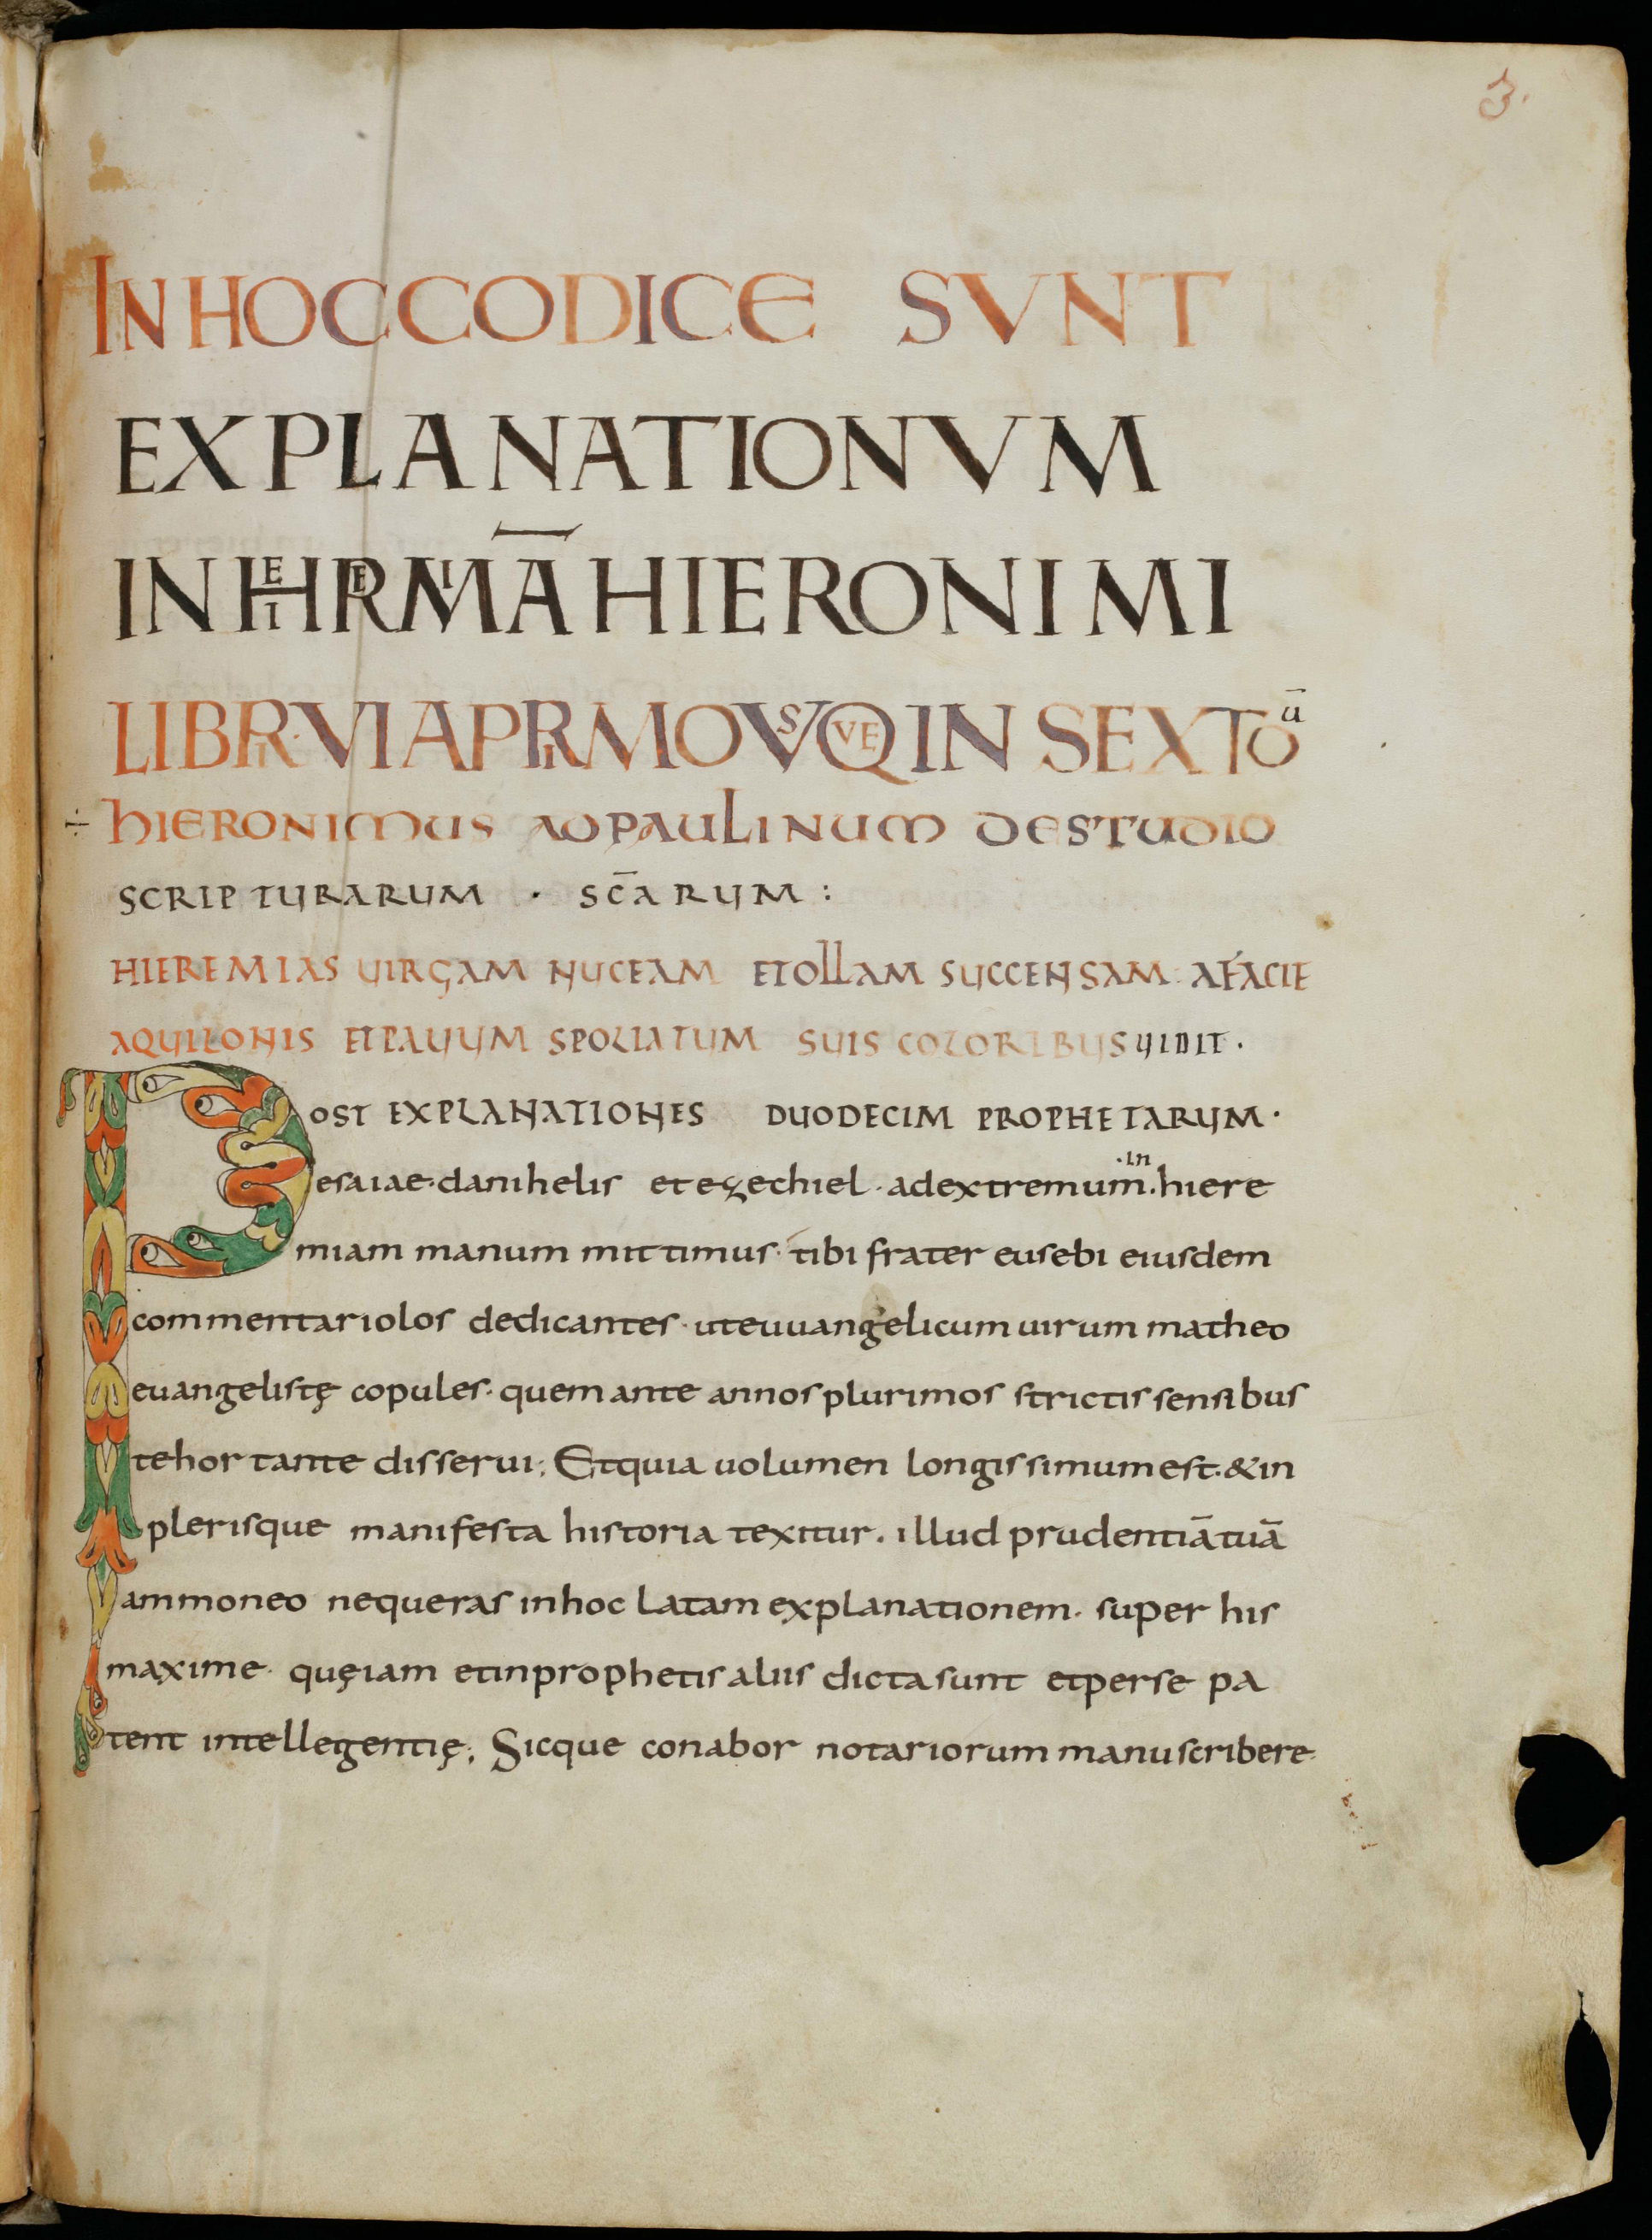 3.
IN HOC CODICE SVNT
EXPLANATIONVM
IN HIEREMIĀ HIERONIMI
LIBRI·VI A PRIMO VSQVE IN SEXTOū
÷ HIERONIMUS AD PAULINUM DE STUDIO
SCRIPTURARUM · SC̄ARUM :
HIEREMIAS UIRGAM NUCEAM ET OLLAM SUCCENSAM · A FACIE
AQUILONIS ET PAUUM SPOLIATUM SUIS COLORIBUS UIDIT ·
POST EXPLANATIONES DUODECIM PROPHETARUM ·
esaiae · danihelis et ezechiel · ad extremum ·in· hiere
miam manum mittimus · tibi frater eusebi eiusdem
commentariolos dedicantes · ut euuangelicum uirum matheo
euangelistę copules · quem ante annos plurimos strictis sensibus
te hortante disserui ; Et quia uolumen longissimum est · & in
plerisque manifesta historia texitur . illud prudentiā tuā
ammoneo ne queras in hoc latam explanationem · super his
maxime · quę iam et in prophetis aliis dicta sunt et per se pa
tent intellegentię ; Sicque conabor notariorum manu scribere